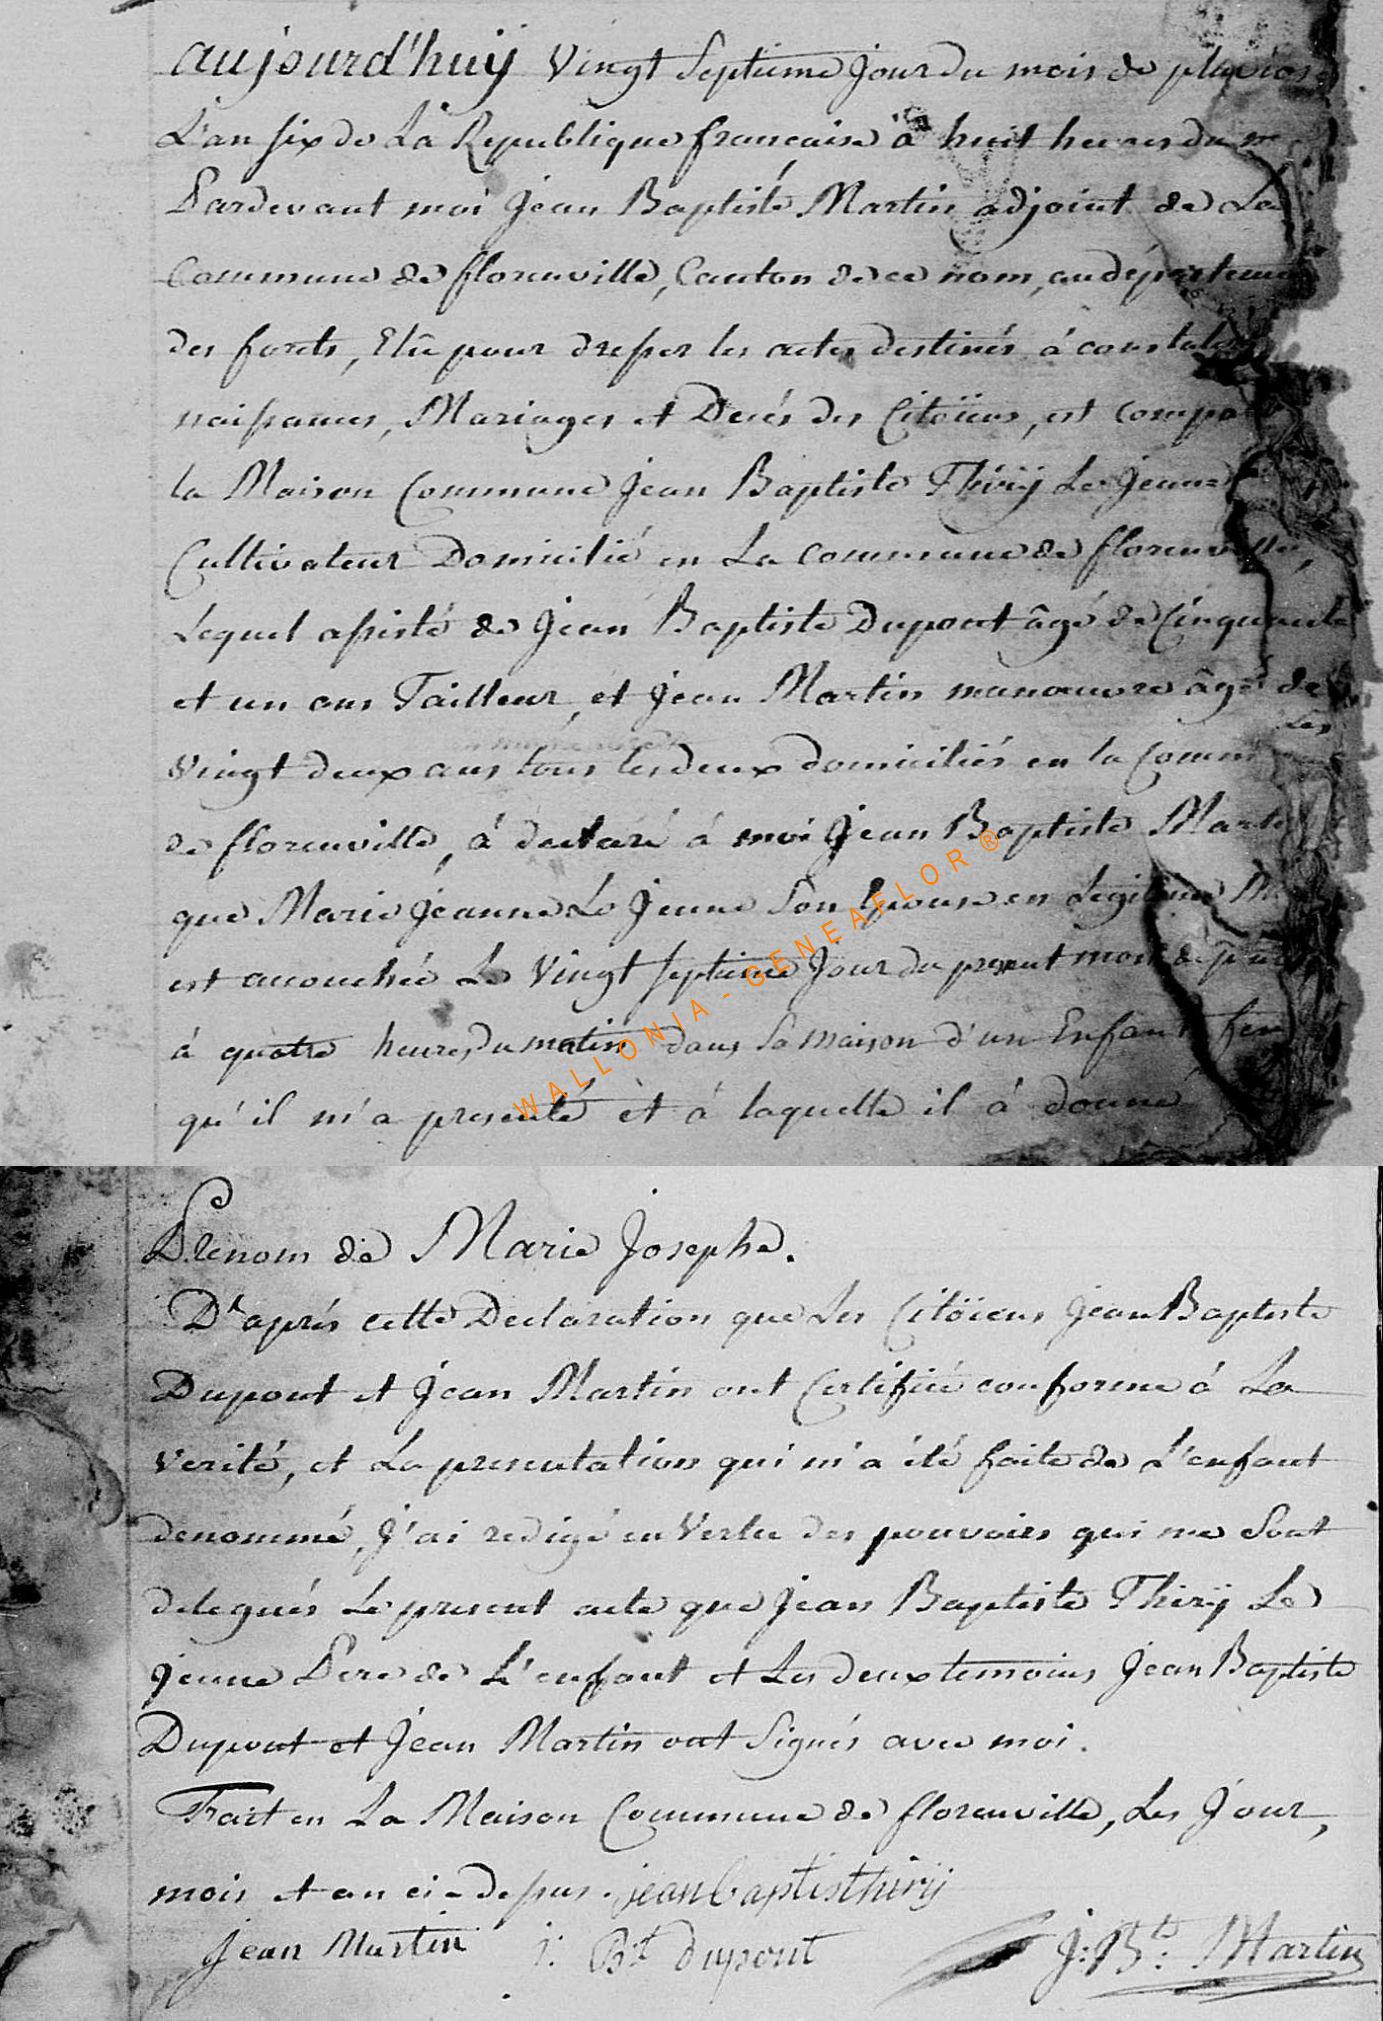 aujourd'huÿ Vingt Septieme jour du mois de pluviose
L'an six de La Republique francaise à huit heures du
Pardevant moi Jean Baptiste Martin adjoint de La
Commune de florenville, Canton de ce nom, au départeme
des forets, Elû pour dresser les actes destinés à constater
naissances, Mariages et Decés des Citoïens, est compa
la Maison Commune Jean Baptiste Thirÿ Le Jeune
Cultivateur Domicilié en La commune de florenville,
Lequel assisté de Jean Baptiste Dupont âgé de Cinquante
et un ans Tailleur, et Jean Martin manoeuvre âgé de
Les
Vingt deux ans tous les deux domiciliés en la Comm
de florenville, à declaré à moi Jean Baptiste Marti
que Marie Jeanne Le Jeune Son Epouse en Legitime M
est accouchée Le Vingt septieme Jour du present mois de plu
à quatre heures du matin dans sa maison d'un Enfant fem
qu'il m'a presenté et à laquelle il à donné
Prenom de Marie Josephe.
D'aprés cette Declaration que Les Citöiens Jean Baptiste
Dupont et Jean Martin ont Certifié conforme à La
verité, et La presentation qui m'a été faite de L'enfant
denommé, J'ai redigé en Vertu des pouvoirs qui me Sont
delegués Le present acte que Jean Baptiste Thirÿ Le
jeune Pere de L'enfant et Les deux temoins Jean Baptiste
Dupont et Jean Martin ont Signés avec moi.
Fait en La Maison Commune de florenville, Les Jour,
mois et an ci-dessus. jean baptist thirÿ
Jean Martin j: Bt dupont J: Bte: Martin
WALLONIA-GENEAFLOR®